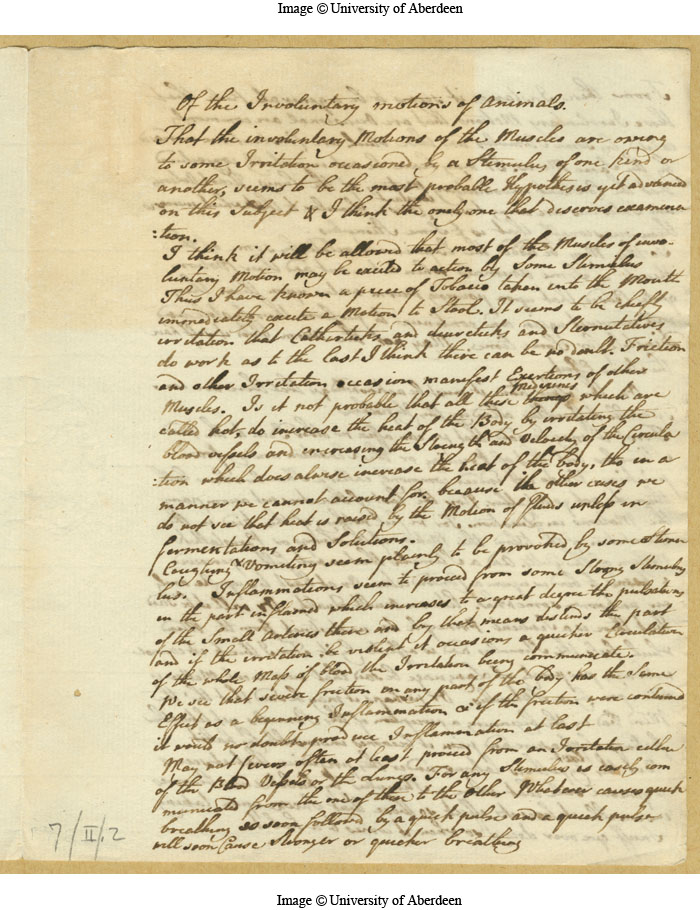 Image © University of Aberdeen
Of the Involuntary motions of animals.
That the involuntary Motions of the Muscles are owing
to some Irritation occasioned by a Stimulus of one kind or
another, seems to be the most probable Hypothesis yet advanced
on this Subject & I think the only one that deserves examina
:tion.
I think it will be allowed that most of the Muscles of invo-
luntary Motion may be excited to action by Some Stimulus
Thus I have known a piece of Tobacco taken into the Mouth
immediately excite a Motion to Stool. It seems to be chiefly
irritation that Catharticks and diureticks and Sternutatives
do work as to the last I think there can be no doubt. Friction
and other Irritation occasion manifest Exertions of other
Medicines
Muscles. Is it not probable that all these things which are
called hot, do increase the heat of the Body by irritating the
blood vessels and increasing the Strength and Velocity of the Circula
:tion which does alwise increase the heat of the body, tho in a
manner we cannot account for, because in other cases we
do not see that heat is raised by the Motion of fluids unless in
fermentations and Solutions.
Coughing & Vomiting seem plainly to be provoked by some
lus. Inflammations seem to proceed from some Strong Stimulus
in the part inflamed which increases to a great degree the pulsations
of the Small Arteries there and by that means distends the part
and if the irritation be violent it occasions a quicker Circulation
of the whole Mass of blood the Irritation being communicate.
We see that severe friction on any part of the body has the Same
Effect as a beginning Inflammation & if this friction were continued
it would no doubt produce Inflammation at last
May not fevers often at least proceed from an Irritation either
of the Blood Vessels or the Lungs. For any Stimulus is easily com
municated from the one of these to the other Whatever causes quick
breathing is soon followed by a quick pulse and a quick pulse
will soon Cause Stronger or quicker breathing
7/II/.2
Image © University of Aberdeen